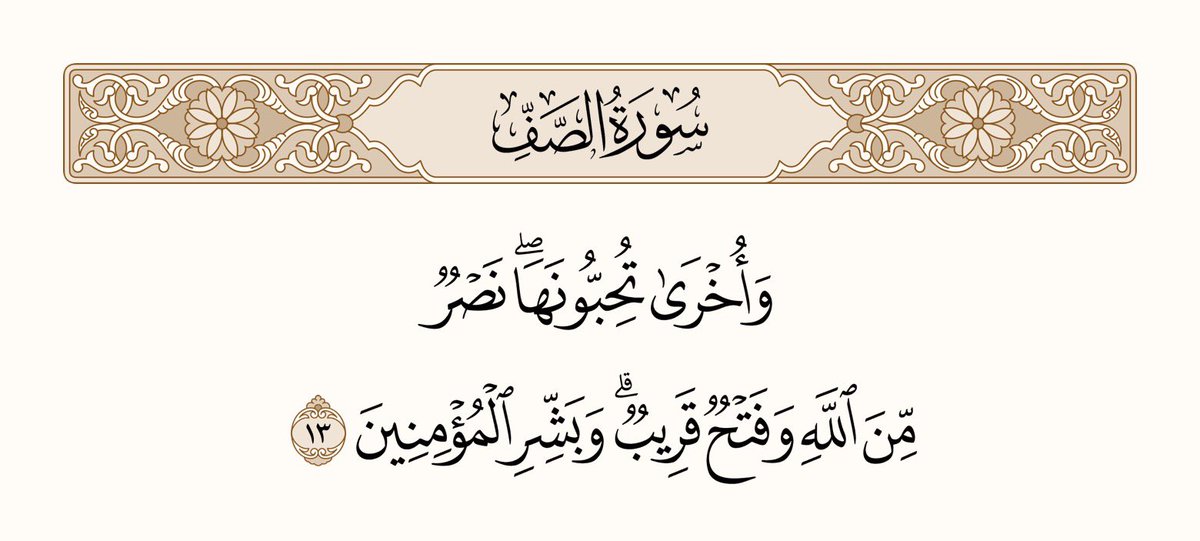 سُورَةُ الصَّفِّ
وَأُخْرَىٰ تُحِبُّونَهَا ۖ نَصْرٌ
مِّنَ ٱللَّهِ وَفَتْحٌ قَرِيبٌ ۗ وَبَشِّرِ ٱلْمُؤْمِنِينَ ١٣